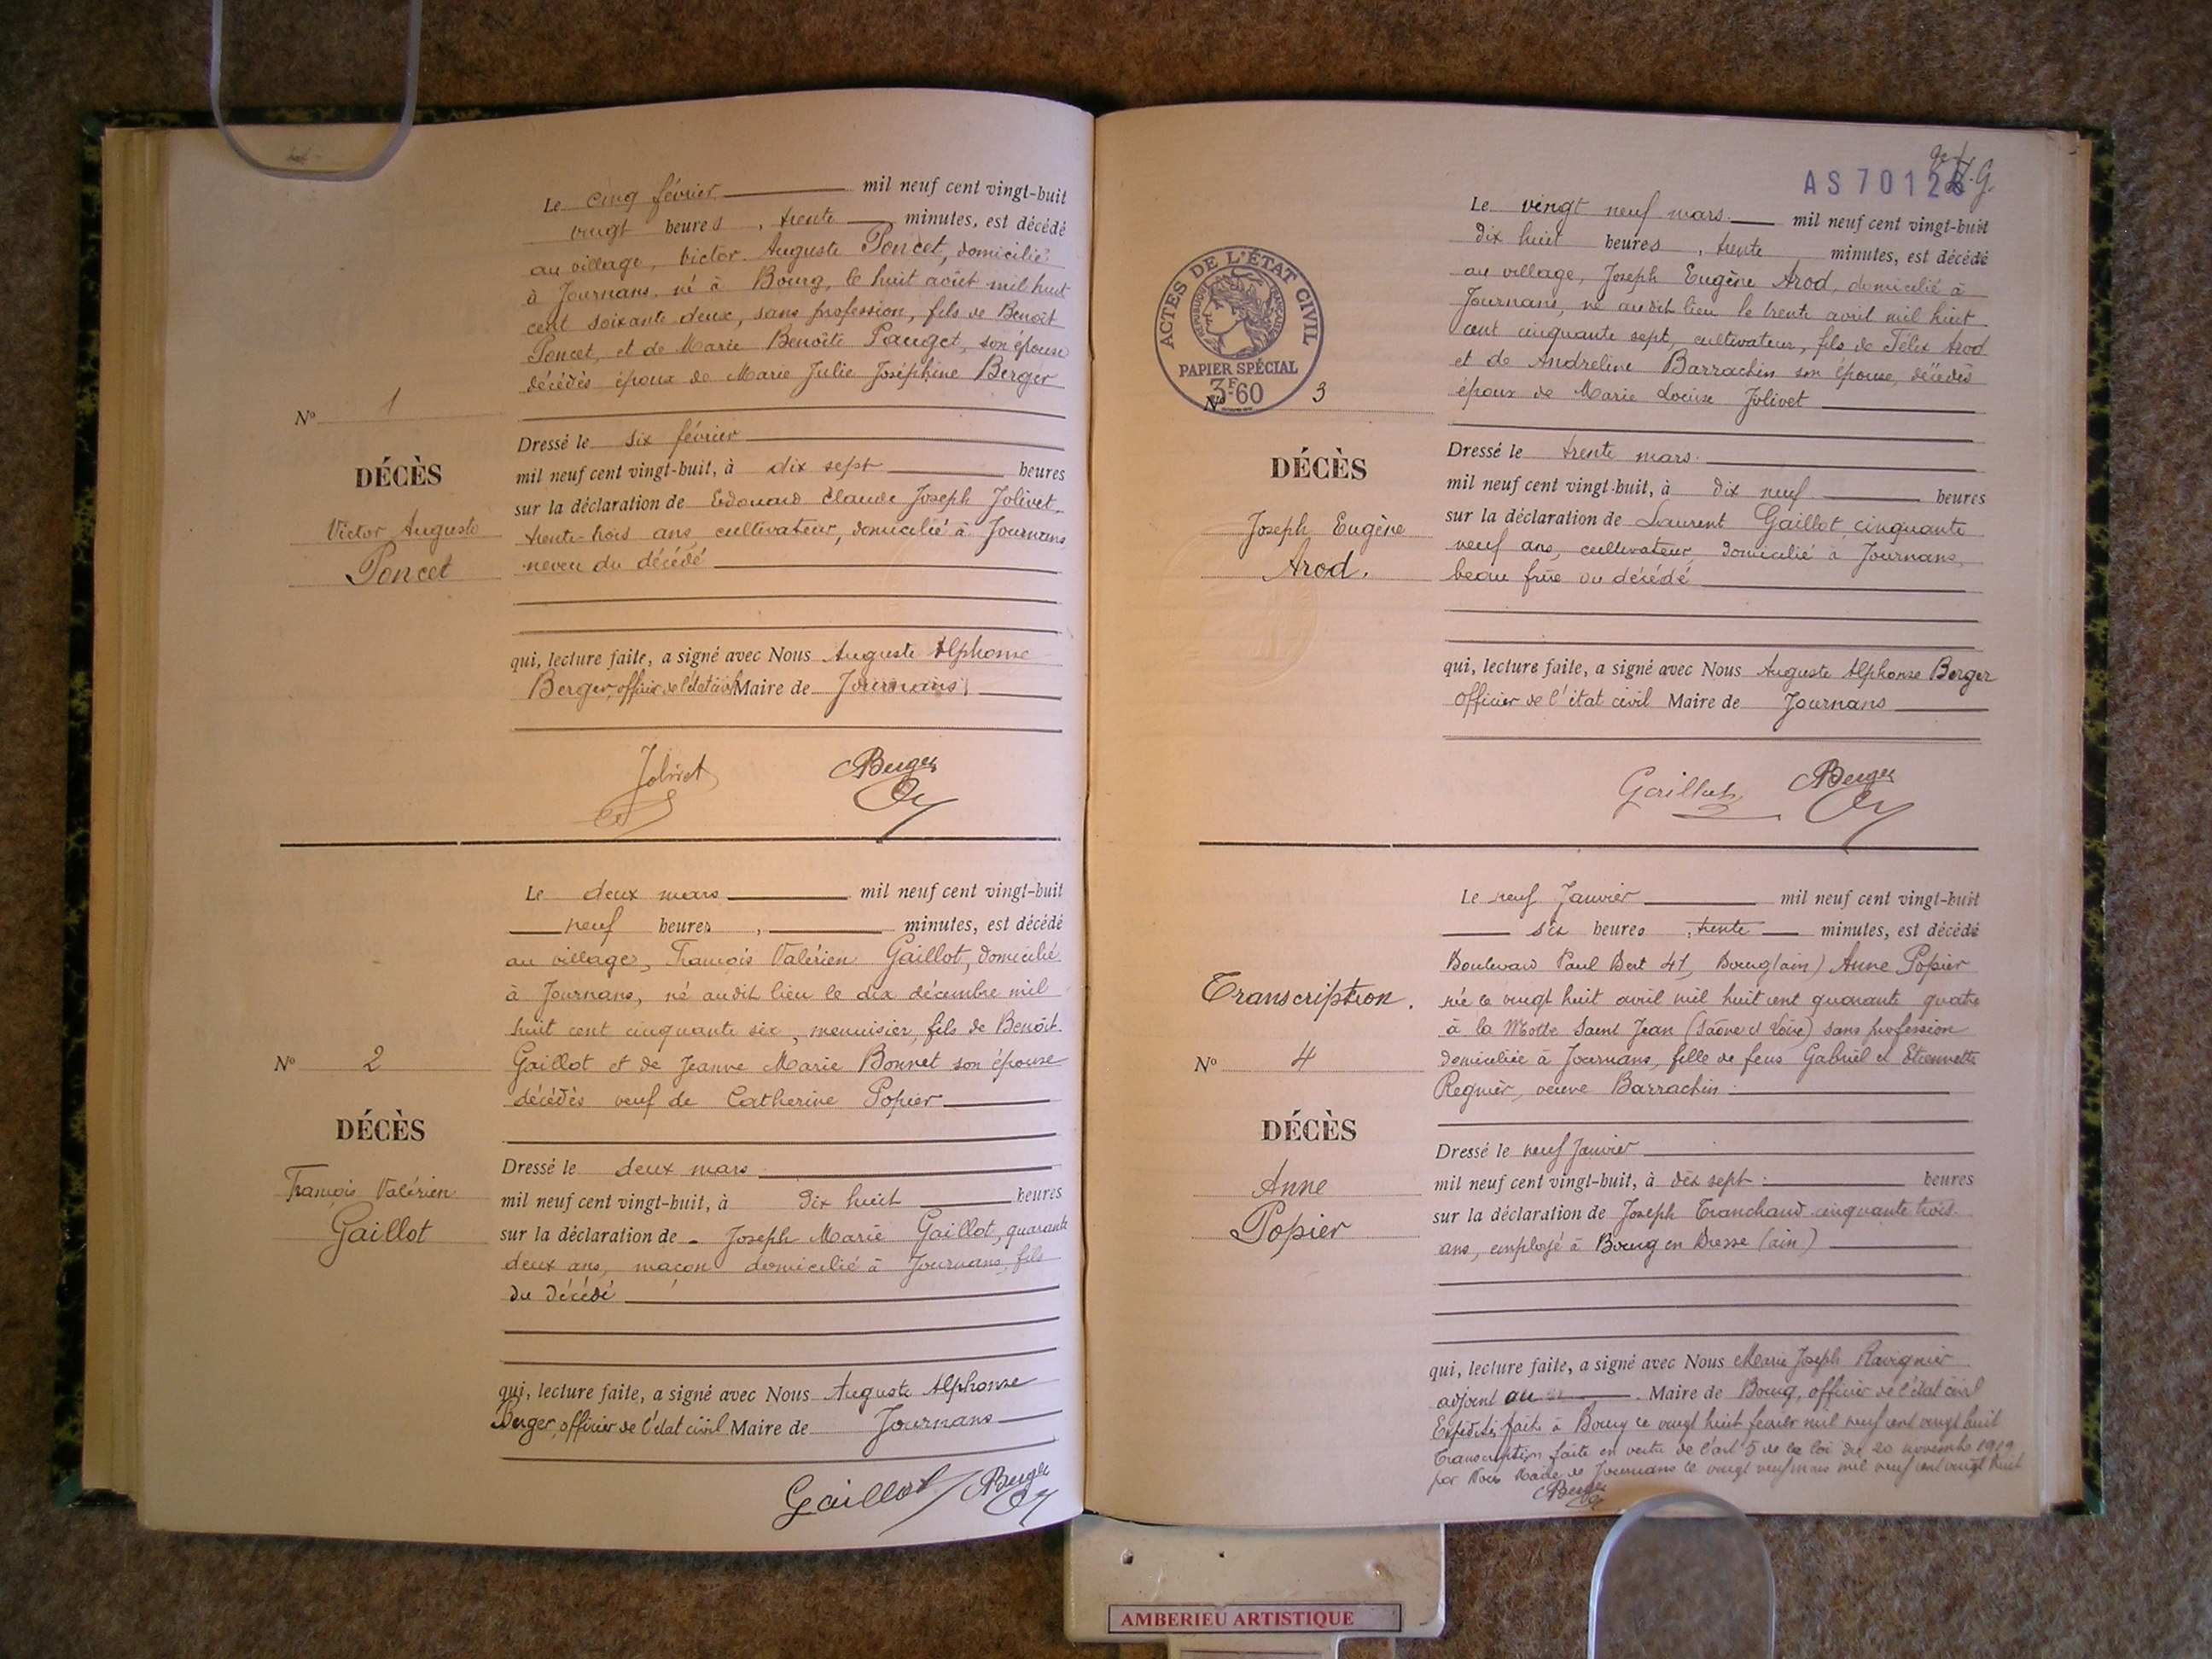 Le cinq février mil neuf cent vingt-huit
vingt heures, trente minutes, est décédé
au village, Victor Auguste Poncet, domicilié
à Journans, né à Bourg, le huit août mil huit
cent soixante deux, sans profession, fils de Benoît
Poncet, et de Marie Benoîte Pauget, son épouse
décédés époux de Marie Julie Joséphine Berger
N° 1
DÉCÈS
Victor Auguste
Poncet
Dressé le six février
mil neuf cent vingt-huit, à dix sept heures
sur la déclaration de Edouard Claude Joseph Jolivet,
trente-trois ans, cultivateur, domicilié à Journans,
neveu du décédé
qui, lecture faite, a signé avec Nous Auguste Alphonse
Berger, officier de l'état civil Maire de Journans
Jolivet Berger
Le deux mars mil neuf cent vingt-huit
neuf heures, minutes, est décédé
au village, François Valérien Gaillot, domicilié
à Journans, né audit lieu le dix décembre mil
huit cent cinquante six, menuisier, fils de Benoît
Gaillot et de Jeanne Marie Bonnet son épouse
décédés veuf de Catherine Popier
N° 2
DÉCÈS
François Valérien
Gaillot
Dressé le deux mars
mil neuf cent vingt-huit, à dix huit heures
sur la déclaration de Joseph Marie Gaillot, quarante
deux ans, maçon domicilié à Journans, fils
du décédé
qui, lecture faite, a signé avec Nous Auguste Alphonse
Berger, officier de l'état civil Maire de Journans
Gaillot Berger
AS 7012
ACTES DE L'ÉTAT CIVIL
RÉPUBLIQUE FRANÇAISE
PAPIER SPÉCIAL
3F60
Le vingt neuf mars mil neuf cent vingt-huit
dix huit heures, trente minutes, est décédé
au village, Joseph Eugène Arod, domicilié à
Journans, né audit lieu le trente avril mil huit
cent cinquante sept, cultivateur, fils de Félix Arod
et de Andreline Barrachin son épouse, décédés
époux de Marie Louise Jolivet
N° 3
DÉCÈS
Joseph Eugène
Arod.
Dressé le trente mars
mil neuf cent vingt-huit, à dix neuf heures
sur la déclaration de Laurent Gaillot, cinquante
neuf ans, cultivateur, domicilié à Journans,
beau frère du décédé
qui, lecture faite, a signé avec Nous Auguste Alphonse Berger
Officier de l'état civil Maire de Journans
Gaillot Berger
Le neuf Janvier mil neuf cent vingt-huit
six heures, trente minutes, est décédé
Boulevard Paul Bert 41, Bourg (ain) Anne Popier
Transcription.
née le vingt huit avril mil huit cent quarante quatre
à la Motte Saint Jean (Saône et Loire) sans profession
domiciliée à Journans, fille de feus Gabriel et Etiennette
Regnier, veuve Barrachin
N° 4
DÉCÈS
Anne
Popier
Dressé le neuf Janvier
mil neuf cent vingt-huit, à dix sept heures
sur la déclaration de Joseph Tranchand cinquante trois
ans, employé à Bourg en Bresse (ain)
qui, lecture faite, a signé avec Nous Marie Joseph Ravignier
adjoint au Maire de Bourg, officier de l'état civil
Expédition faite à Bourg ce vingt huit février mil neuf cent vingt huit
Transcription faite en vertu de l'art 5 de la loi du 20 novembre 1919
par Nous Maire de Journans le vingt neuf mars mil neuf cent vingt huit
Berger
AMBERIEU ARTISTIQUE